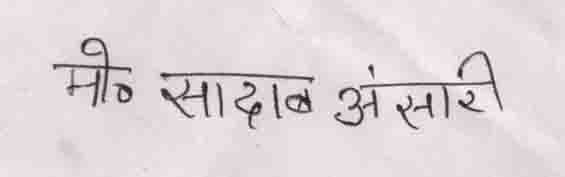 मो० सादाब अंसारी